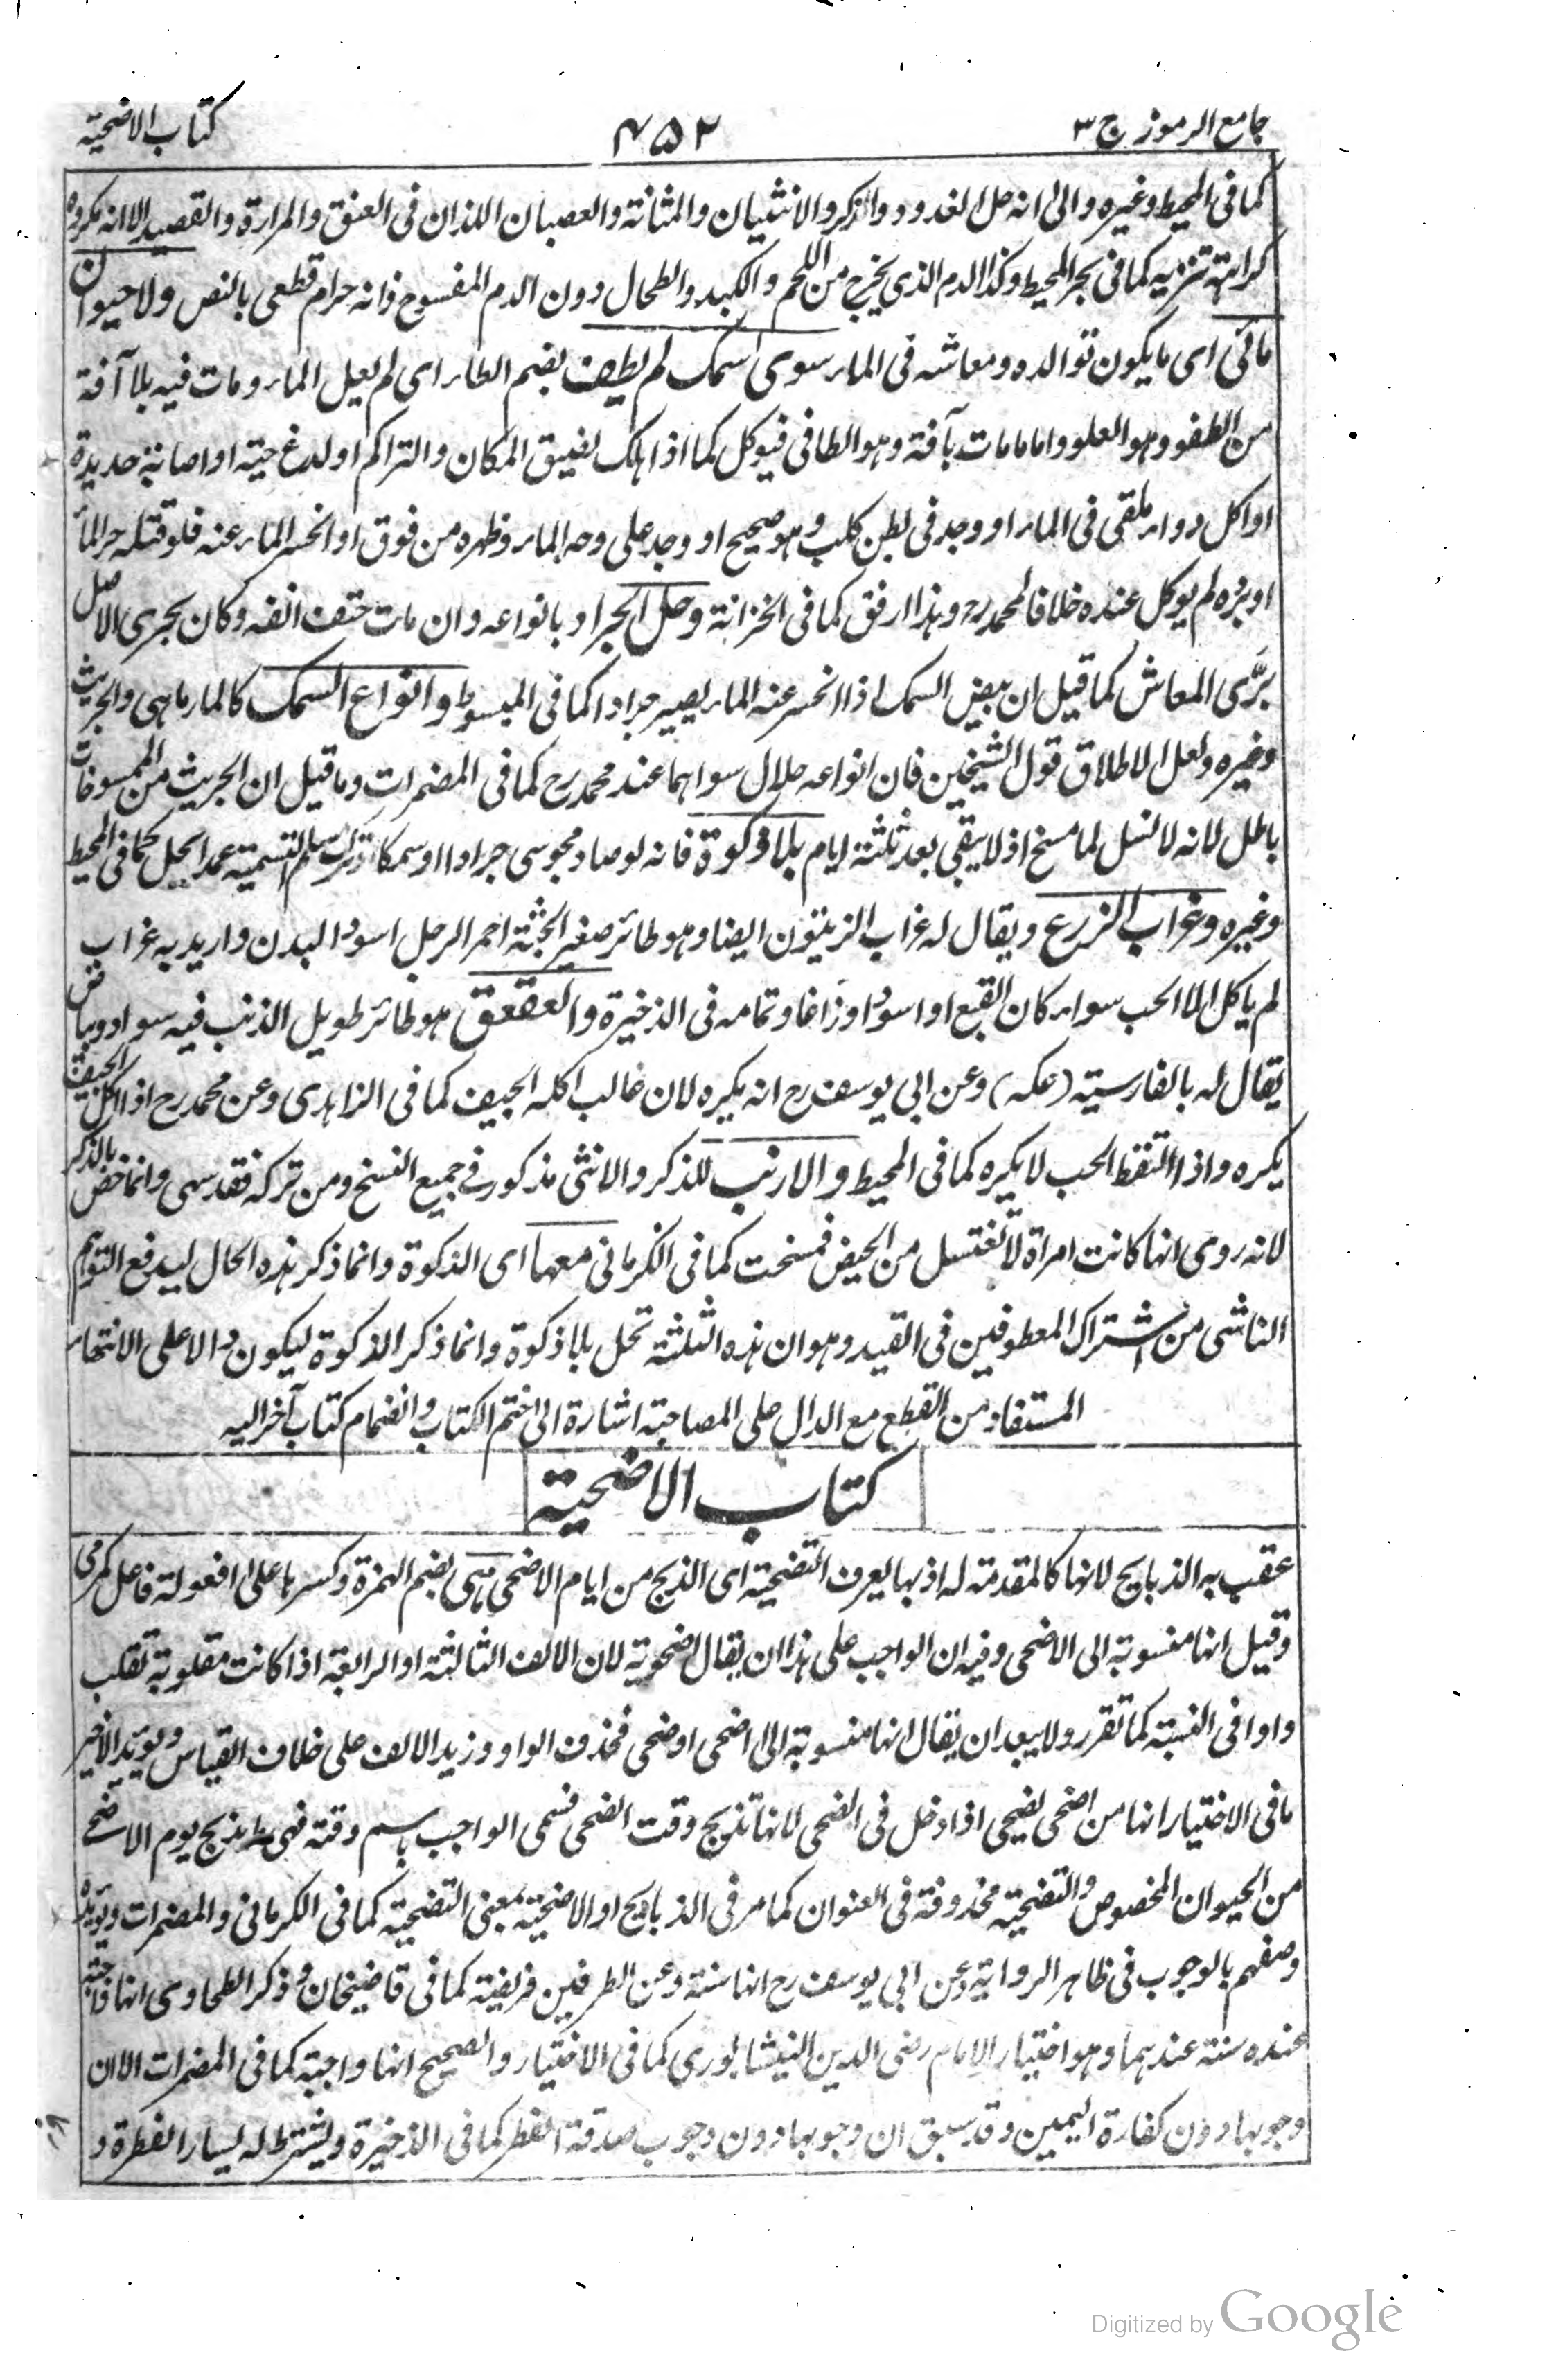 جامع الرموز ج ٣
٤٥٢
كتاب الاضحية
كما فى المحيط وغيره والى انه حل الغدود والذكر والانثيان والمثانة والعصبان اللذان فى العنق والمرارة والقصيد الا انه مكروه
كراهة تنزيه كما فى بحر المحيط وكذا الدم الذى يخرج من اللحم والكبد والطحال دون الدم المفسوح فانه حرام قطعى بالنص ولا حيوان
مائى اى ما يكون توالده ومعاشه فى الماء سوى سمك لم يطف بضم الطاء اى لم يعل الماء ومات فيه بلا آفة
من الطفو وهو العلو واما ما مات بآفة وهو الطافى فيوكل كما اذا هلك لضيق المكان والتراكم او لدغ حية او اصابة حديدة
او اكل دواء ملقى فى الماء او وجد فى بطن كلب وهو صحيح او وجد على وجه الماء وظهره من فوق او انحسر الماء عنه فلو قتله حر الماء
او برده لم يوكل عنده خلافا لمحمد رح وهذا ارفق كما فى الخزانة وحل الجراد بانواعه وان مات حتف انفه وكان بحرى الاصل
برّى المعاش كما قيل ان بيض السمك اذا انحسر عنه الماء يصير جرادا كما فى المبسوط وانواع السمك كالمارماهى والجريث
وغيره ولعل الاطلاق قول الشيخين فان انواعه حلال سواهما عند محمد رح كما فى المضمرات وما قيل ان الجريث من الممسوخات
باطل لانه لا نسل لما مسخ اذ لا يبقى بعد ثلثة ايام بلا ذكوة فانه لو صاد مجوسى جرادا او سمكا او ترك مسلم التسمية عمدا يحل كما فى المحيط
وغيره وغراب الزرع ويقال له غراب الزيتون ايضا وهو طائر صغير الجثة احمر الرجل اسود البدن واريد به غراب
لم ياكل الا الحب سواء كان ابقع او اسود او زاغا وتمامه فى الذخيرة والعقعق هو طائر طويل الذنب فيه سواد وبياض
يقال له بالفارسية (عكه) وعن ابى يوسف رح انه يكره لان غالب اكله الجيف كما فى الزاهدى وعن محمد رح اذا اكل الجيف
يكره واذا التقط الحب لا يكره كما فى المحيط والارنب للذكر والانثى مذكور فى جميع النسخ ومن تركه فقد سهى وانما خص بالذكر
لانه روى انها كانت امراة لا تغتسل من الحيض فمسخت كما فى الكرمانى معها اى الذكوة وانما ذكر هذه الحال ليدفع التوهم
الناشى من اشتراك المعطوفين فى القيد وهو ان هذه الثلثة تحل بلا ذكوة وانما ذكر الذكوة ليكون دالا على الانتهاء
المستفاد من القطع مع الدال على المصاحبة اشارة الى ختم الكتاب وانضمام كتاب آخر اليه
كتاب الاضحية
عقب به الذبايح لانها كالمقدمة له اذ بها يعرف التضحية اى الذبح من ايام الاضحى هى بضم الهمزة وكسرها على افعولة فاعل كمرمى
وقيل انها منسوبة الى الاضحى وفيه ان الواجب على هذا ان يقال اضحوية لان الالف الثالثة او الرابعة اذا كانت مقلوبة تقلب
واوا فى النسبة كما تقرر ولا يبعد ان يقال انها منسوبة الى اضحى او ضحى فحذف الواو وزيد الالف على خلاف القياس ويؤيد الاخير
ما فى الاختيار انها من اضحى يضحى اذا دخل فى الضحى لانها تذبح وقت الضحى فسمى الواجب باسم وقته فهى ما يذبح يوم الاضحى
من الحيوان المخصوص والتضحية محذوفة فى العنوان كما مر فى الذبايح او الاضحية بمعنى التضحية كما فى الكرمانى والمضمرات ويؤيده
وصفهم بالوجوب فى ظاهر الرواية وعن ابى يوسف رح انها سنة وعن الطرفين فريضة كما فى قاضيخان وذكر الطحاوى انها واجبة
عنده سنة عندهما وهو اختيار الامام رضى الدين النيشابورى كما فى الاختيار والصحيح انها واجبة كما فى المضمرات الا ان
وجوبها دون كفارة اليمين وقد سبق ان وجوبها دون وجوب صدقة الفطر كما فى الذخيرة ويشترط له يسار الفطرة و
Digitized by Google